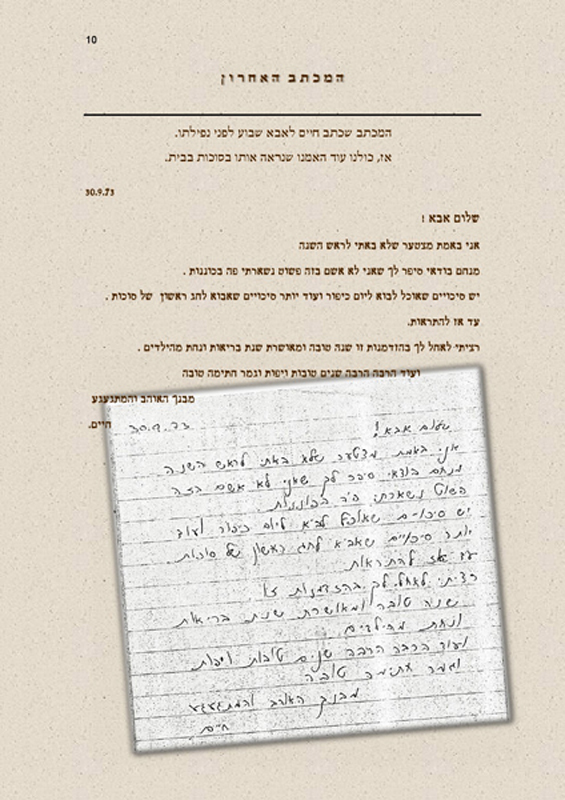 10
המכתב האחרון
המכתב שכתב חיים לאבא שבוע לפני נפילתו.
אז, כולנו עוד האמנו שנראה אותו בסוכות בבית.
30.9.73
שלום אבא !
אני באמת מצטער שלא באתי לראש השנה
מנחם בודאי סיפר לך שאני לא אשם בזה פשוט נשארתי פה בכוננות .
יש סיכויים שאוכל לבוא ליום כיפור ועוד יותר סיכויים שאבוא לחג ראשון של סוכות .
עד אז להתראות.
רציתי לאחל לך בהזדמנות זו שנה טובה ומאושרת שנת בריאות ונחת מהילדים .
ועוד הרבה הרבה שנים טובות ויפות וגמר חתימה טובה
מבנך האוהב והמתגעגע
חיים.
30.9.73
שלום אבא!
אני באמת מצטער שלא באתי לראש השנה
מנחם בודאי סיפר לך שאני לא אשם בזה
פשוט נשארתי פה בכוננות.
יש סיכויים שאוכל לבוא ליום כיפור ועוד
יותר סיכויים שאבוא לחג ראשון של סוכות.
עד אז להתראות.
רציתי לאחל לך בהזדמנות זו
שנה טובה ומאושרת שנת בריאות
ונחת מהילדים.
ועוד הרבה הרבה שנים טובות ויפות
וגמר חתימה טובה
מבנך האוהב והמתגעגע
חיים